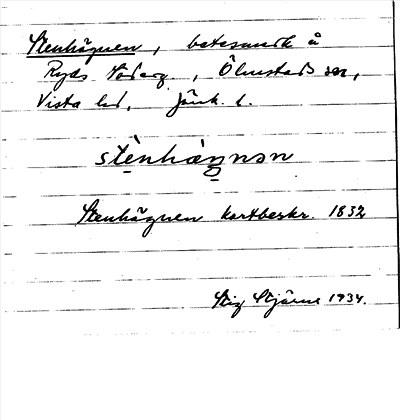 Stenhägnen, betesmark å
Ryds Söderg., Ölmstads sn,
Vista hd, Jönk. l.
stènhàŋnən
Stenhägnen kartbeskr. 1832
Stig Stjärne 1934.